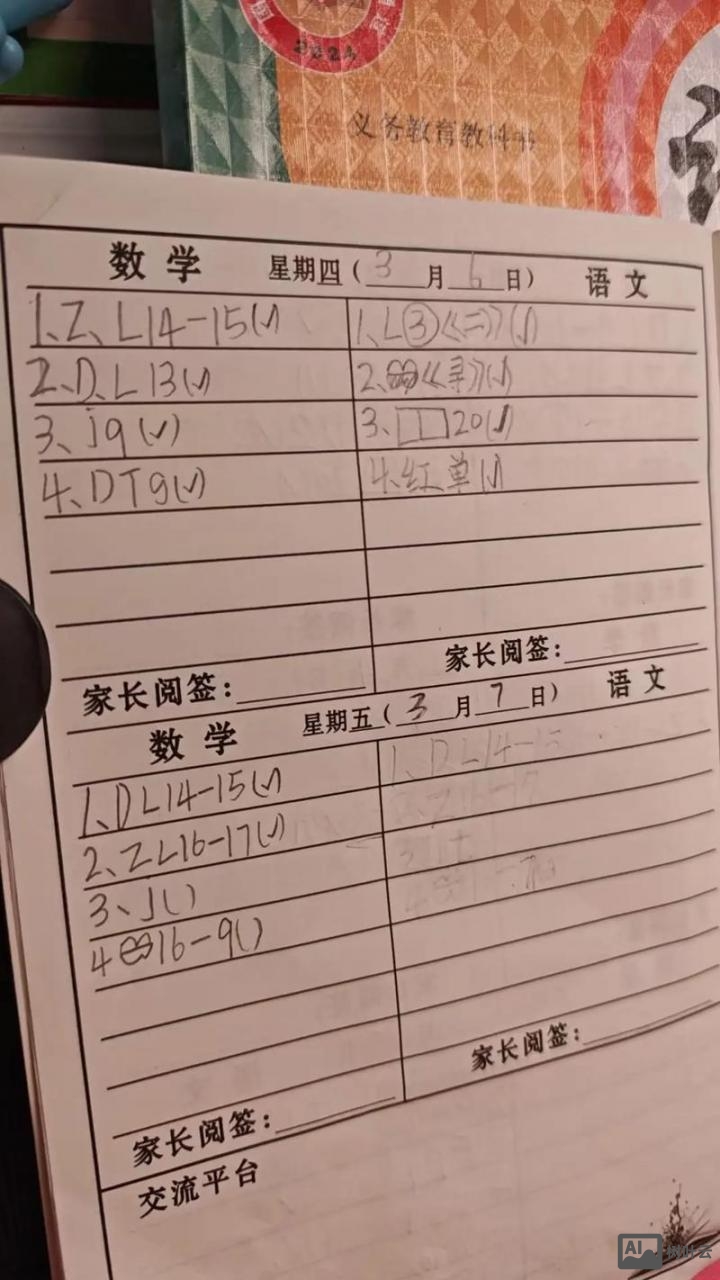 2024
义务教育教科书
数学 星期四（3月6日） 语文
1、Z、L14-15(√) 1、L③《二》(√)
2、D、L13(√) 2、《寻》(√)
3、j9(√) 3、20(√)
4、DT9(√) 4、红单(√)
家长阅签：
家长阅签：
数学 星期五（3月7日） 语文
1、DL14-15(√) 1、DL14-15
2、ZL16-17(√)
3、j()
4 16-9()
家长阅签：
家长阅签：
交流平台
AI